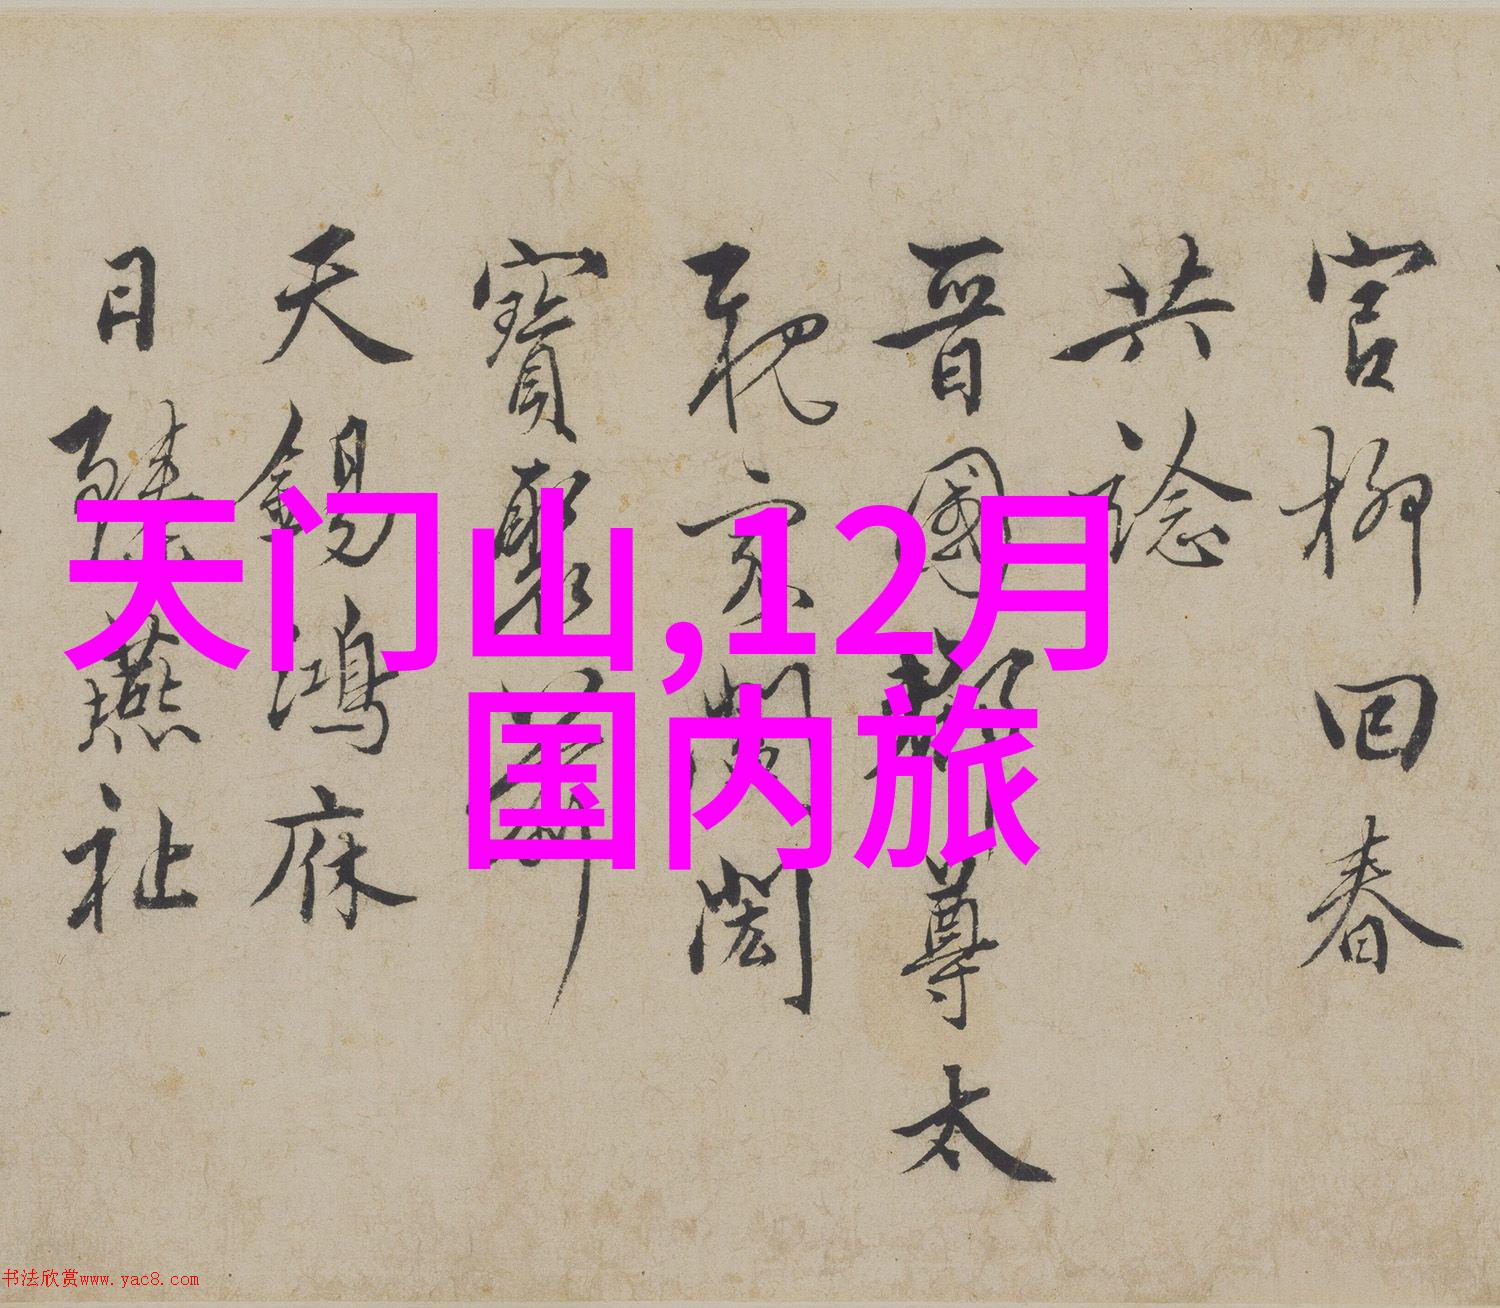 天门山,12月
国内旅
官柳回春
共諗
晉國尊太
家
寶
天錫鴻庥
日臻燕祉
书法欣赏www.yac8.com